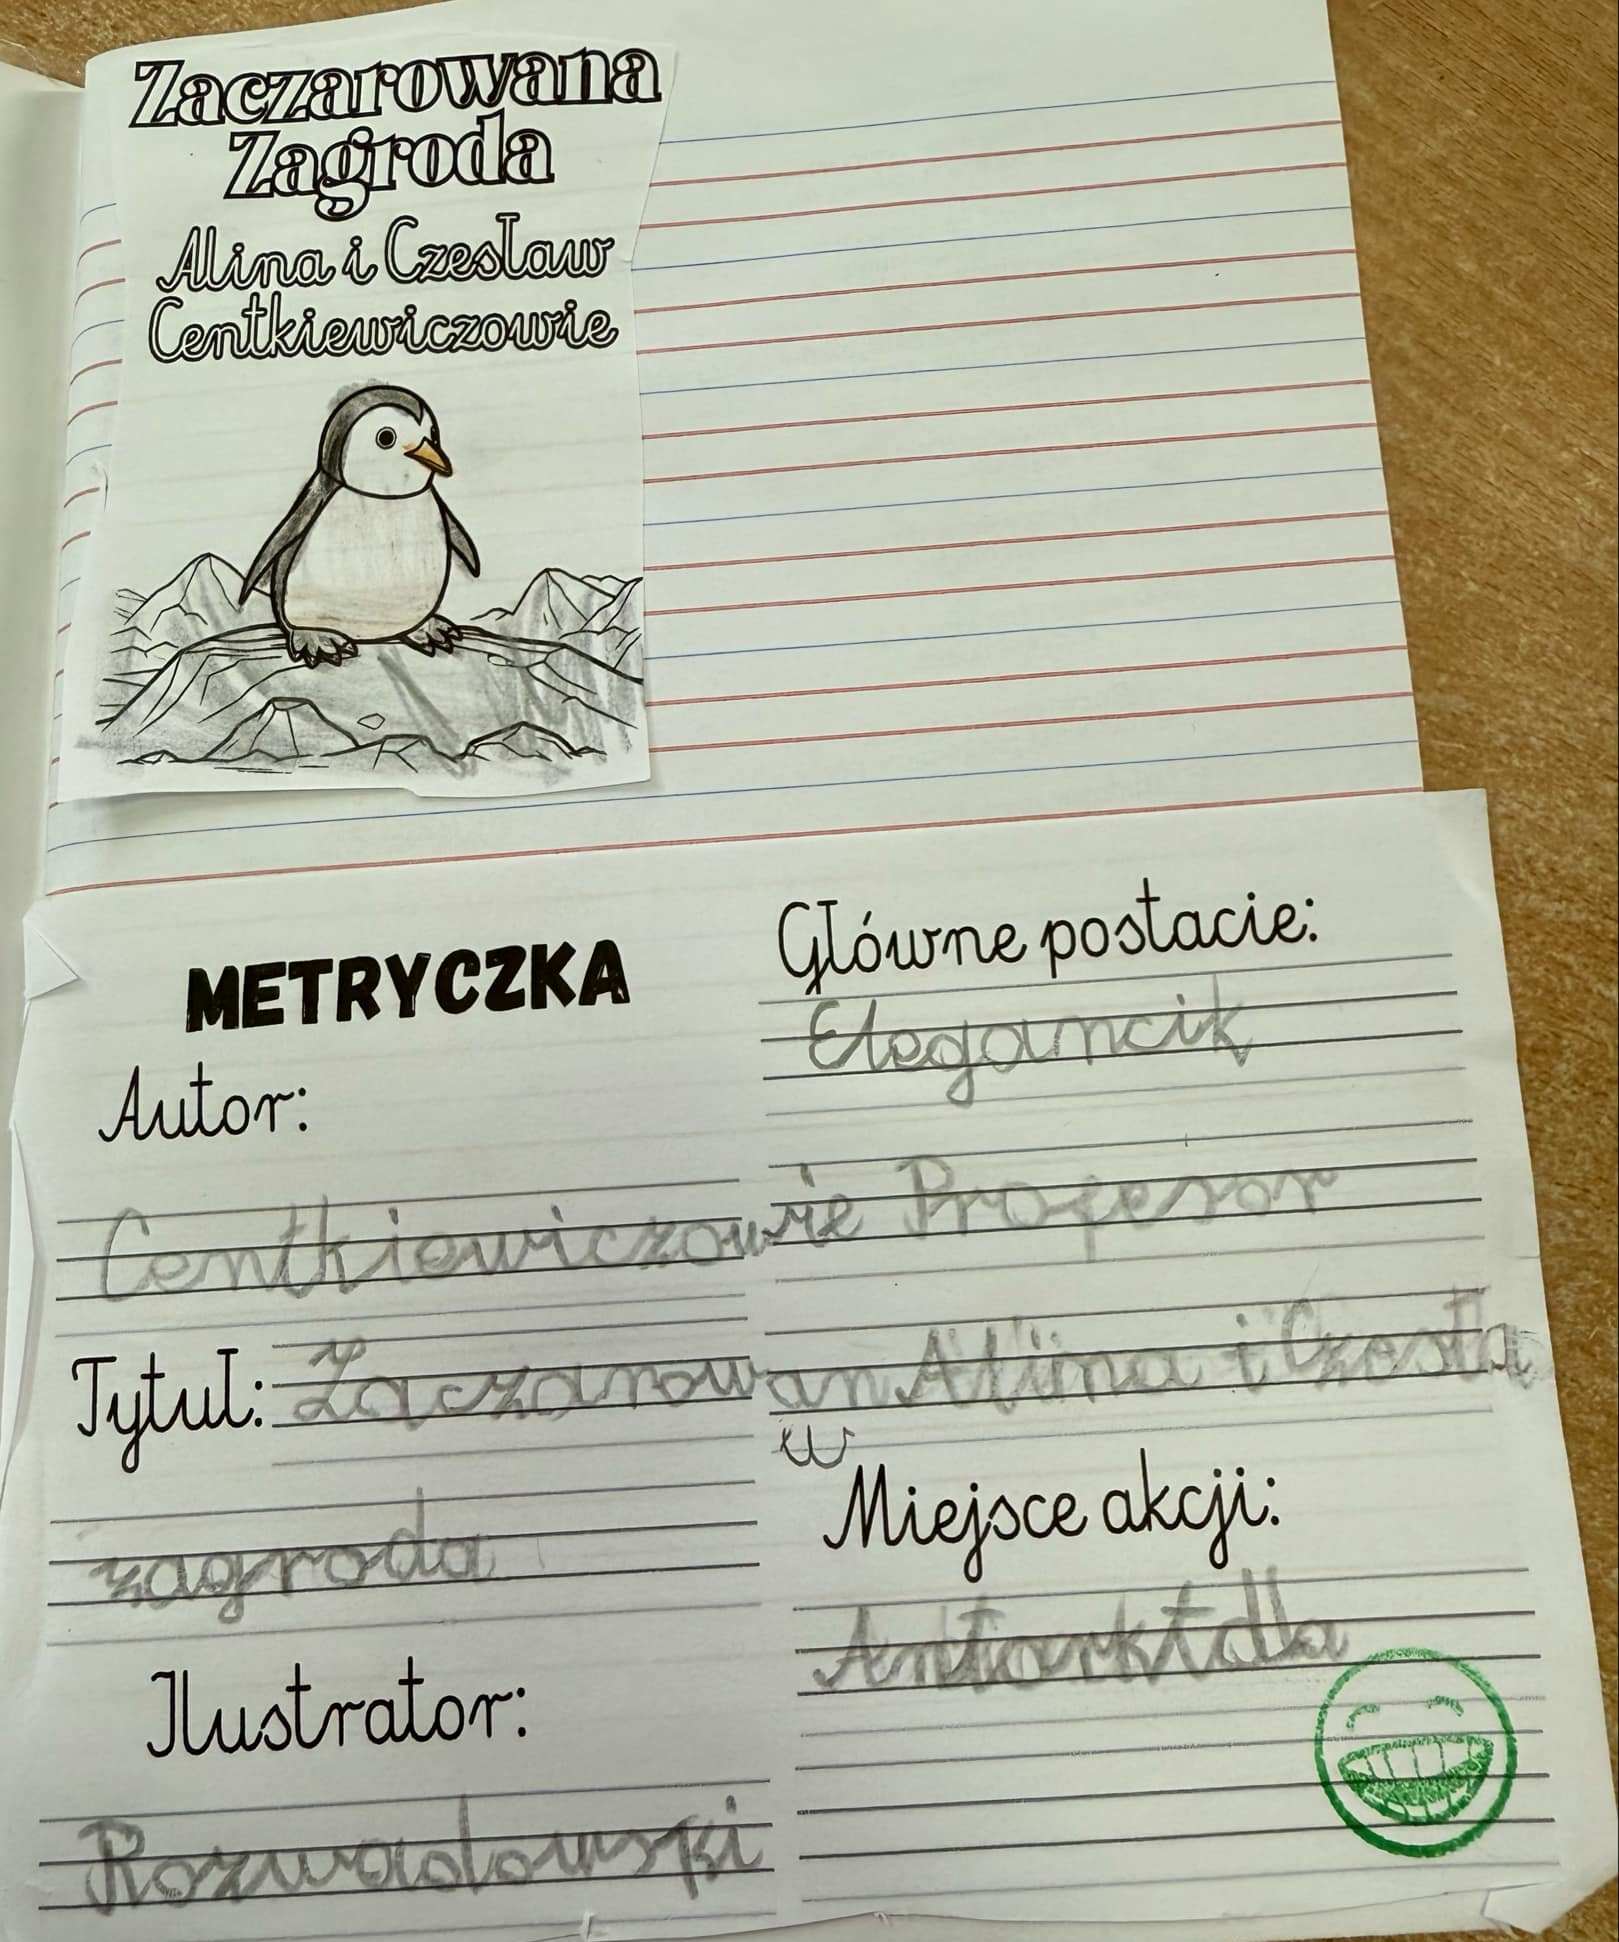 Zaczarowana
Zagroda
Alina i Czesław
Centkiewiczowie
METRYCZKA
Autor:
Centkiewiczowie
Tytuł: Zaczarowan
zagroda
Ilustrator:
Rozwadowski
Główne postacie:
Elegancik
Profesor
Alina i Czesła
w
Miejsce akcji: